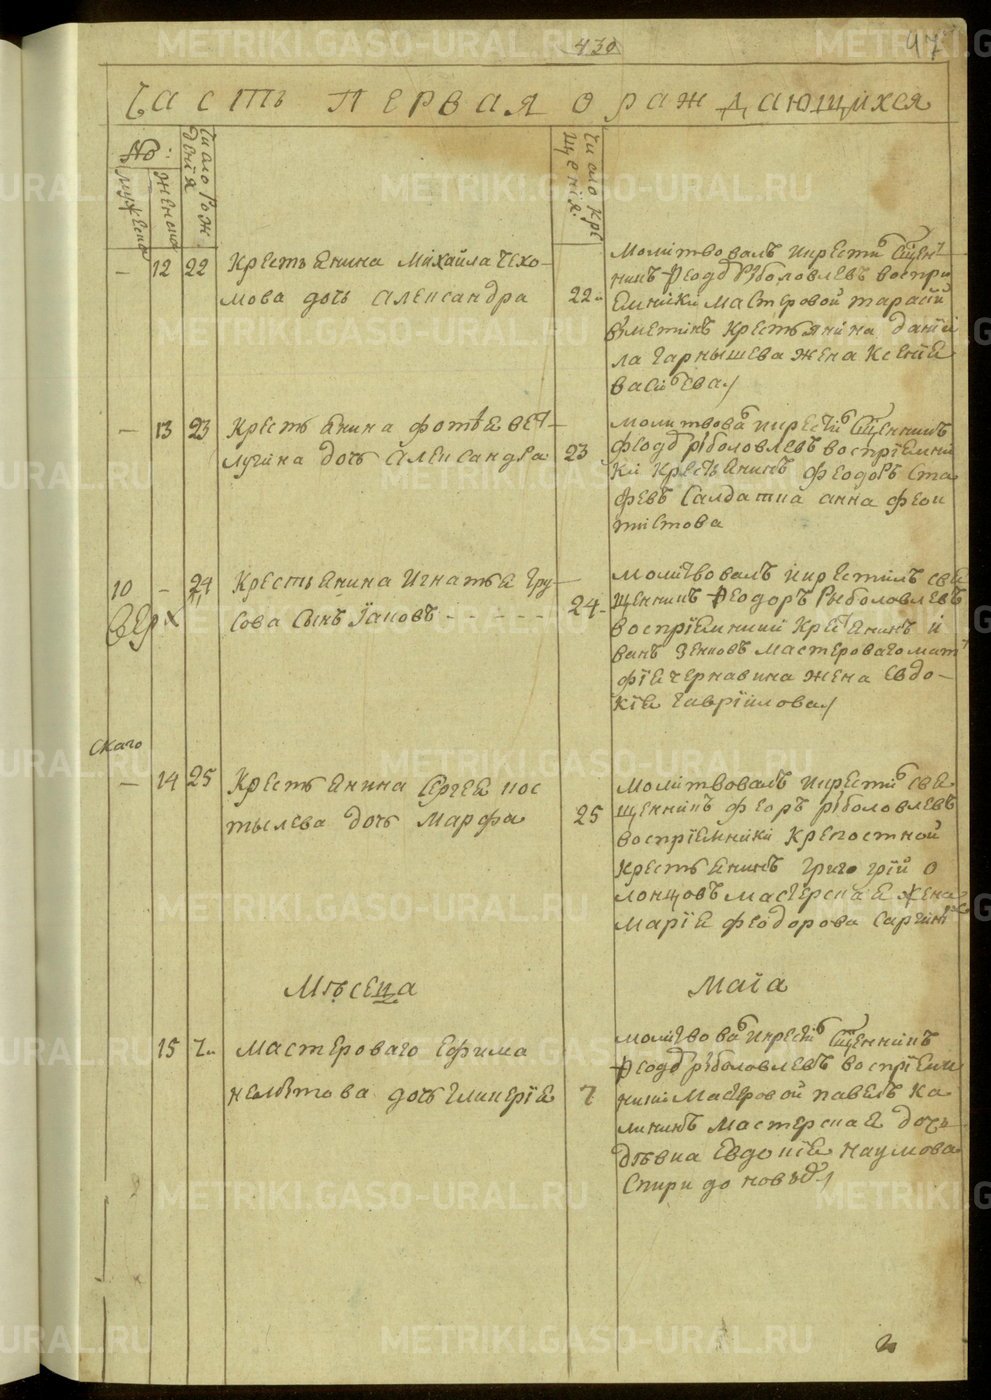 430
47
Часть первая о раждающихся
№:
мужеска
женска
Число рож
дения
Число кре
щения:
— 12 22 Крестьянина Михайла Чехо—
мова дочь Александра
22
Молитвовалъ и крестилъ священ
никъ Феодоръ Рыболовлевъ воспри
емники мастеровой Тарасий
Вяметкинъ крестьянина Дании
ла Гарнышева жена Ксения
Васильева
— 13 23 Крестьянина Фотея Вет—
лугина дочь Александра
23
Молитвовалъ и крестилъ священникъ
Феодоръ Рыболовлевъ восприемни
ки крестьянинъ Феодоръ Ста
фѣевъ салдатка Анна Феок
тистова
10 — 24 Крестьянина Игнатья Тру—
сова сынъ Иаковъ - - - - -
верх
24
Молитвовалъ и крестилъ свя
щенникъ Феодоръ Рыболовлевъ
восприемники крестьянинъ И
ванъ Зенковъ мастероваго Мат
фия Чернавина жена Евдо—
кия Гаврилова
скаго
— 14 25 Крестьянина Сергея Кос
тылева дочь Марфа
25
Молитвовалъ и крестилъ свя
щенникъ Феоръ Рыболовлевъ
восприемники крепостной
крестьянинъ Григорий О
лонцовъ мастерская жена
Мария Феодорова
Мѣсеца
Маиа
15 7 Мастероваго Ефима
дочь Гликерия
7
Молитвовалъ и крестилъ священникъ
Феодоръ Рыболовлевъ восприем
ники мастеровой Павелъ Ка
лининъ мастерская дочь
дѣвка Евдокия Наумова
Спиридонова